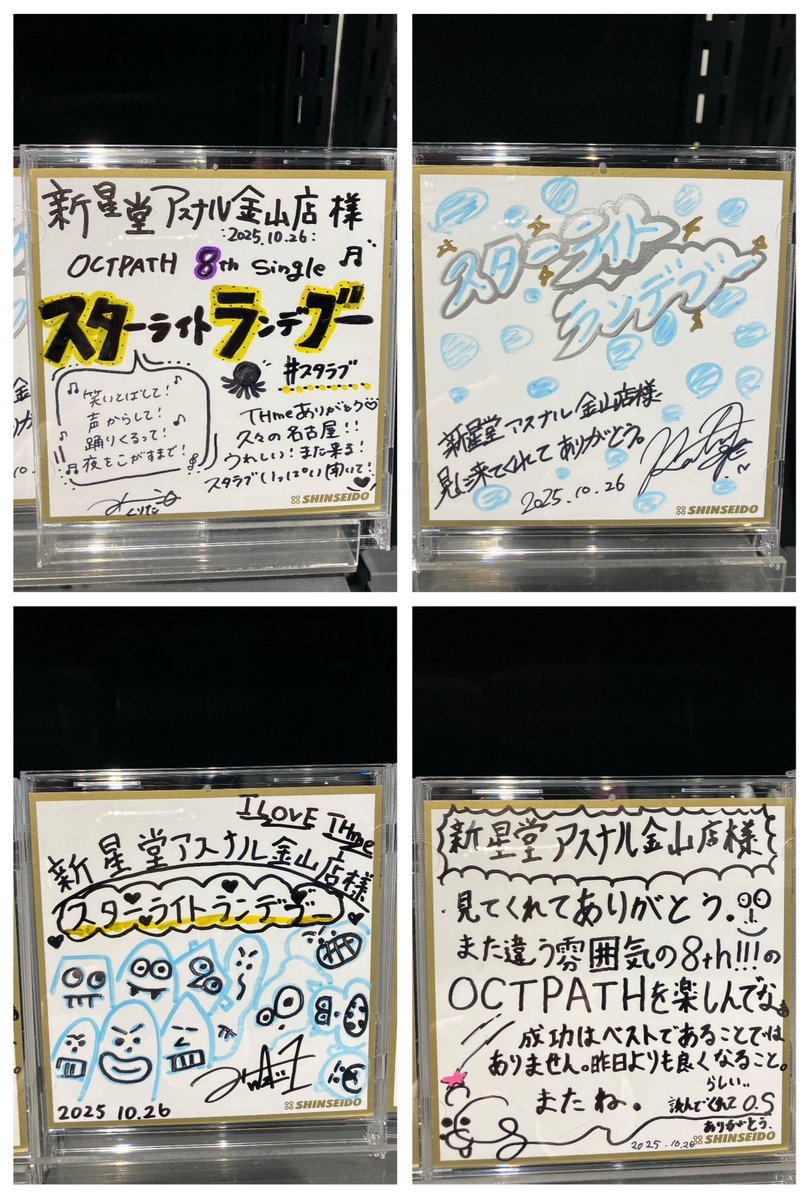 新星堂 アスナル金山店 様
:2025.10.26:
OCTPATH 8th Single
スターライトランデブー
#スタラブ
笑いとばして!
声からして!
踊りくるって!
夜をこがすまで!
THmeありがとう
久々の名古屋!!
うれしい!また来る!
スタラブいっぱい聞いて!
くりた
SHINSEIDO
スターライト
ランデブー
新星堂 アスナル金山店様
見に来てくれて ありがとう。
2025.10.26
SHINSEIDO
I LOVE THme
新星堂アスナル金山店様
スターライトランデブー
2025 10.26
SHINSEIDO
新星堂アスナル金山店様
見てくれてありがとう.
また違う雰囲気の8th!!!の
OCTPATHを楽しんでな
成功はベストであることでは
ありません。昨日よりも良くなること。
らしい..
またね。
読んでくれて O.S
ありがとう.
2025.10.26
SHINSEIDO